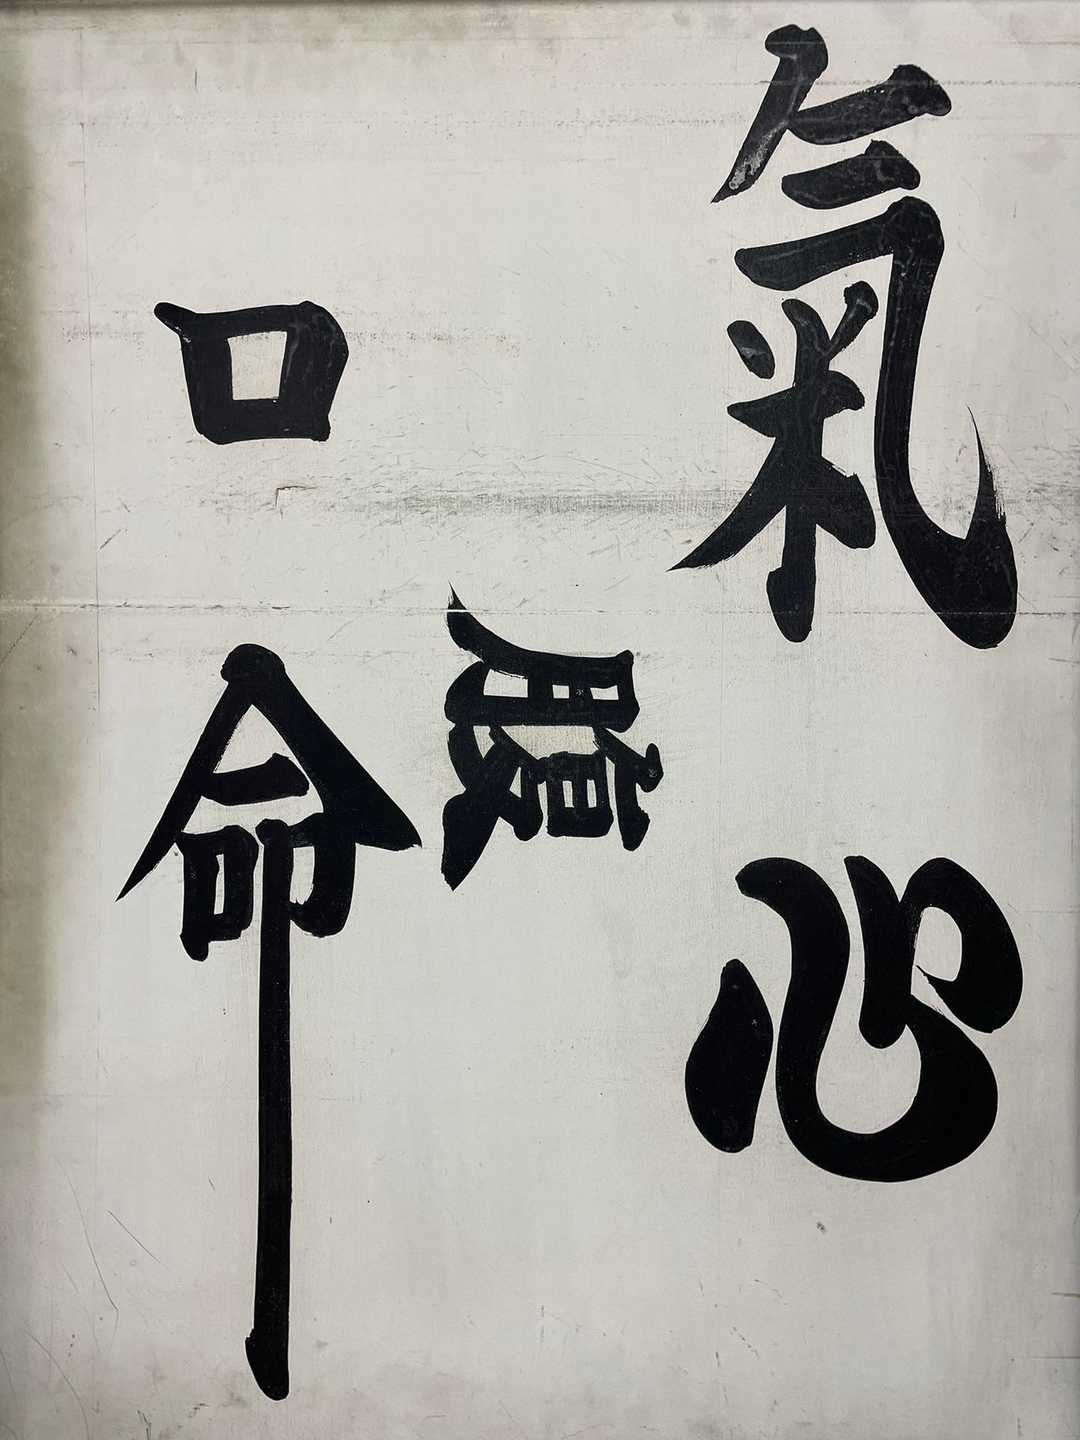 氣
心
腹
口
命